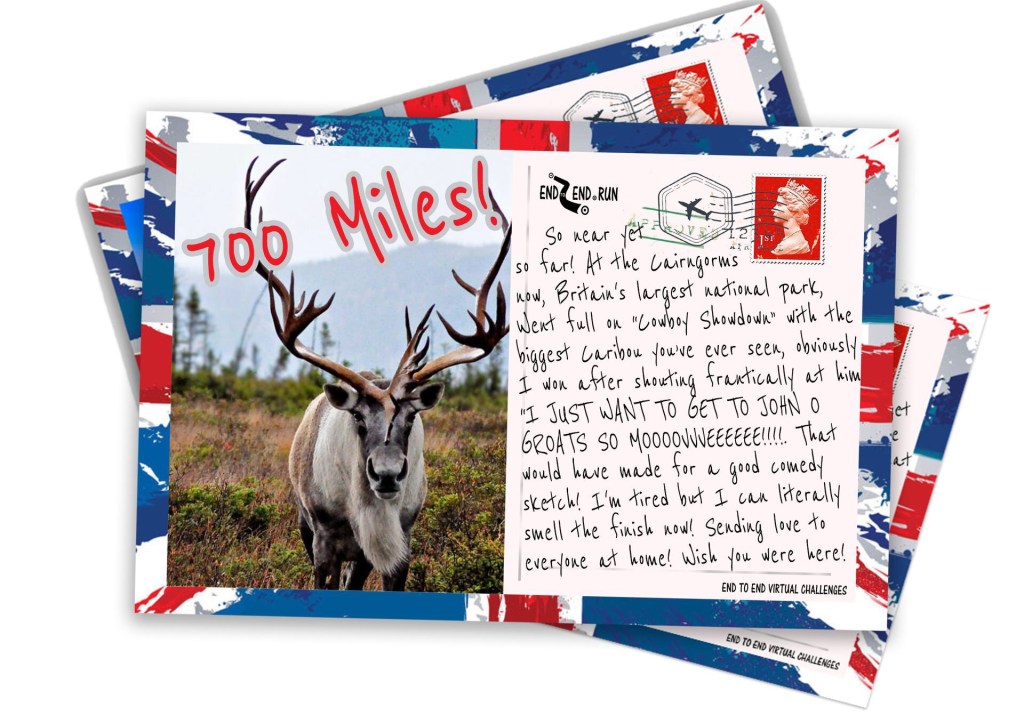 700 Miles!
END TO END.RUN
APPROVED
1ST
So near yet
so far! At the Cairngorms
now, Britain's largest national park,
Went full on "Cowboy Showdown" with the
biggest Caribou you've ever seen, obviously
I won after shouting frantically at him
"I JUST WANT TO GET TO JOHN O
GROATS SO MOOOOVVVEEEEEE!!!!. That
would have made for a good comedy
sketch! I'm tired but I can literally
smell the finish now! Sending love to
everyone at home! Wish you were here!
END TO END VIRTUAL CHALLENGES
et
e
at
END TO END VIRTUAL CHALLENGES